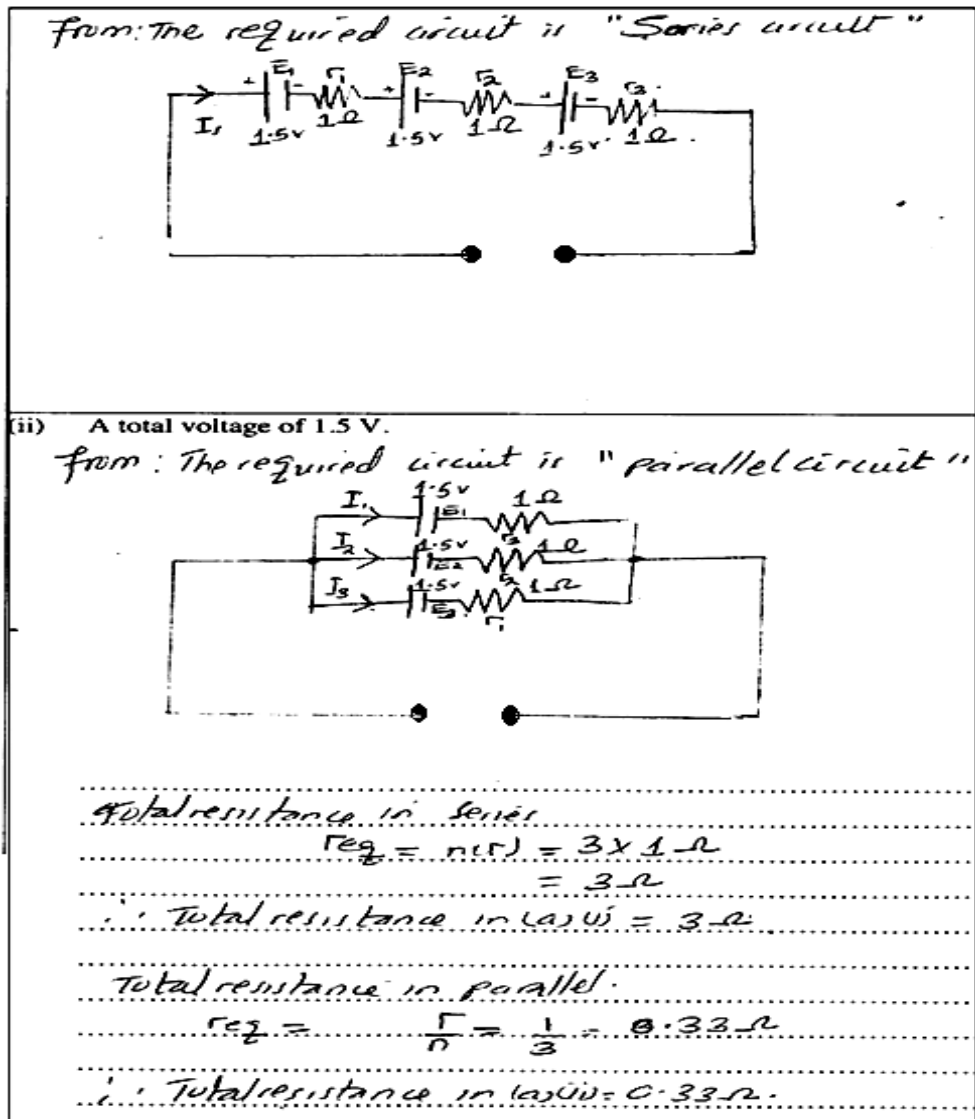 from: The required circuit is "Series circuit"
E1 r1 E2 r2 E3 r3
+ - + - + -
I1 1.5v 1Ω 1.5v 1Ω 1.5v 1Ω
(ii) A total voltage of 1.5 V.
from: The required circuit is "parallel circuit"
I1 1.5v E1 1Ω r3
I2 1.5v E2 1Ω r2
I3 1.5v E3 1Ω r1
Total resistance in series
req = n(r) = 3 x 1 Ω
= 3 Ω
∴ Total resistance in (a)(i) = 3 Ω.
Total resistance in parallel.
req = r/n = 1/3 = 0.33 Ω
∴ Total resistance in (a)(ii) = 0.33 Ω.